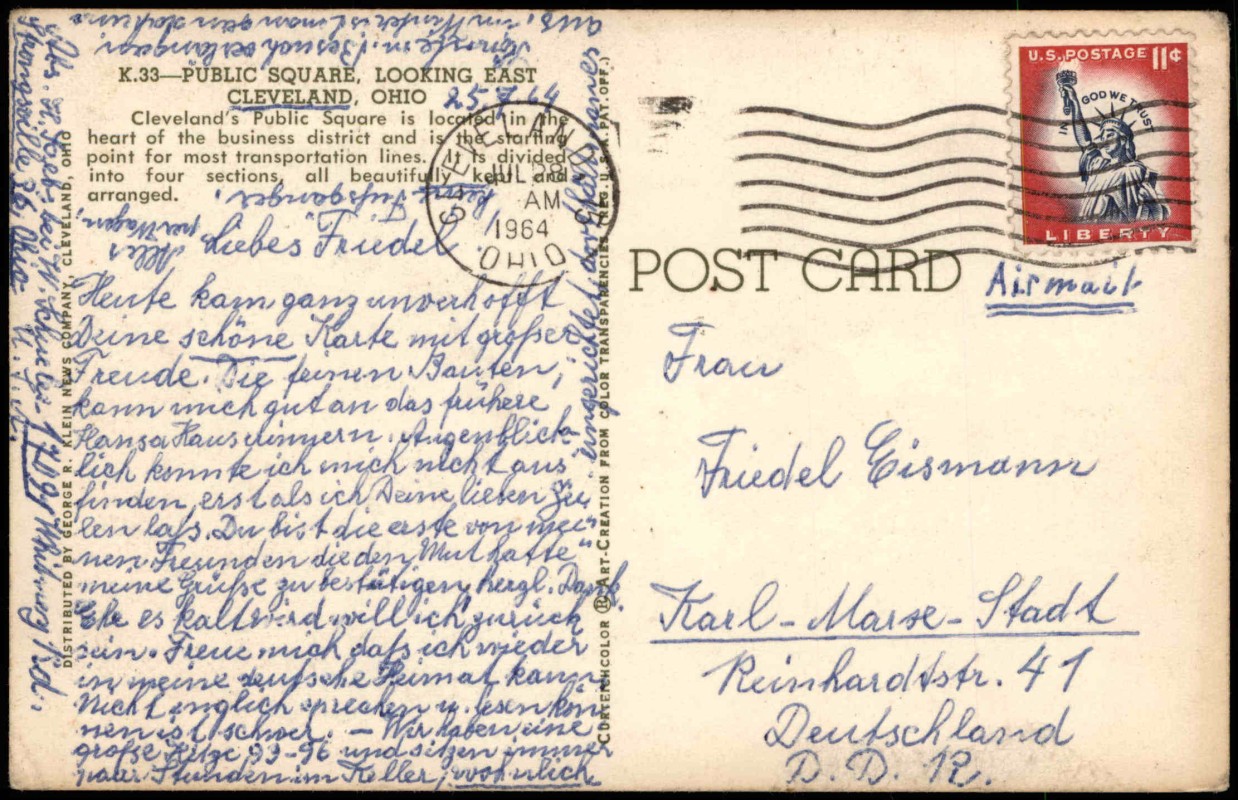 K.33—PUBLIC SQUARE, LOOKING EAST
CLEVELAND, OHIO
25. 7. 64
Cleveland's Public Square is located in the
heart of the business district and is the starting
point for most transportation lines. It is divided
into four sections, all beautifully kept and
arranged.
Liebes Friedel!
Heute kam ganz unverhofft
Deine schöne Karte mit großer
Freude. Die feinen Bauten,
kann mich gut an das frühere
Hansa Haus erinnern. Augenblick-
lich konnte ich mich nicht aus
finden, erst als ich Deine lieben Zei-
len laß. Du bist die erste von mei-
nen Freunden die den Mut hatte
meine Grüße zu bestätigen herzl. Dank.
Ehe es kalt wird will ich zurück
sein. Freue mich daß ich wieder
in meine deutsche Heimat kann
Nicht englich sprechen u. lesen kön
nen ist schwer. — Wir haben eine
große Hitze 93-96 und sitzen immer
paar Stunden im Keller, wohnlich
eingerichtet
kein Fußgänger.
Alles
per Wagen,
Abs. 
Strongsville 36, Ohio
DISTRIBUTED BY GEORGE R. KLEIN NEWS COMPANY, CLEVELAND, OHIO
CURTEICHCOLOR ® ART-CREATION FROM COLOR TRANSPARENCIES (REG. U.S.A. PAT. OFF.)
CLEVELAND
JUL 28
AM
1964
OHIO
U.S. POSTAGE 11¢
IN GOD WE TRUST
LIBERTY
POST CARD
Airmail
Frau
Friedel Eismann
Karl-Marx-Stadt
Reinhardtstr. 41
Deutschland
D. D. R.